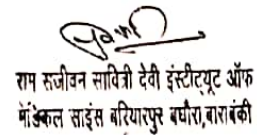 राम सजीवन सावित्री देवी इंस्टीट्यूट ऑफ
मेडिकल साइंस बरियारपुर बघौरा,बाराबंकी